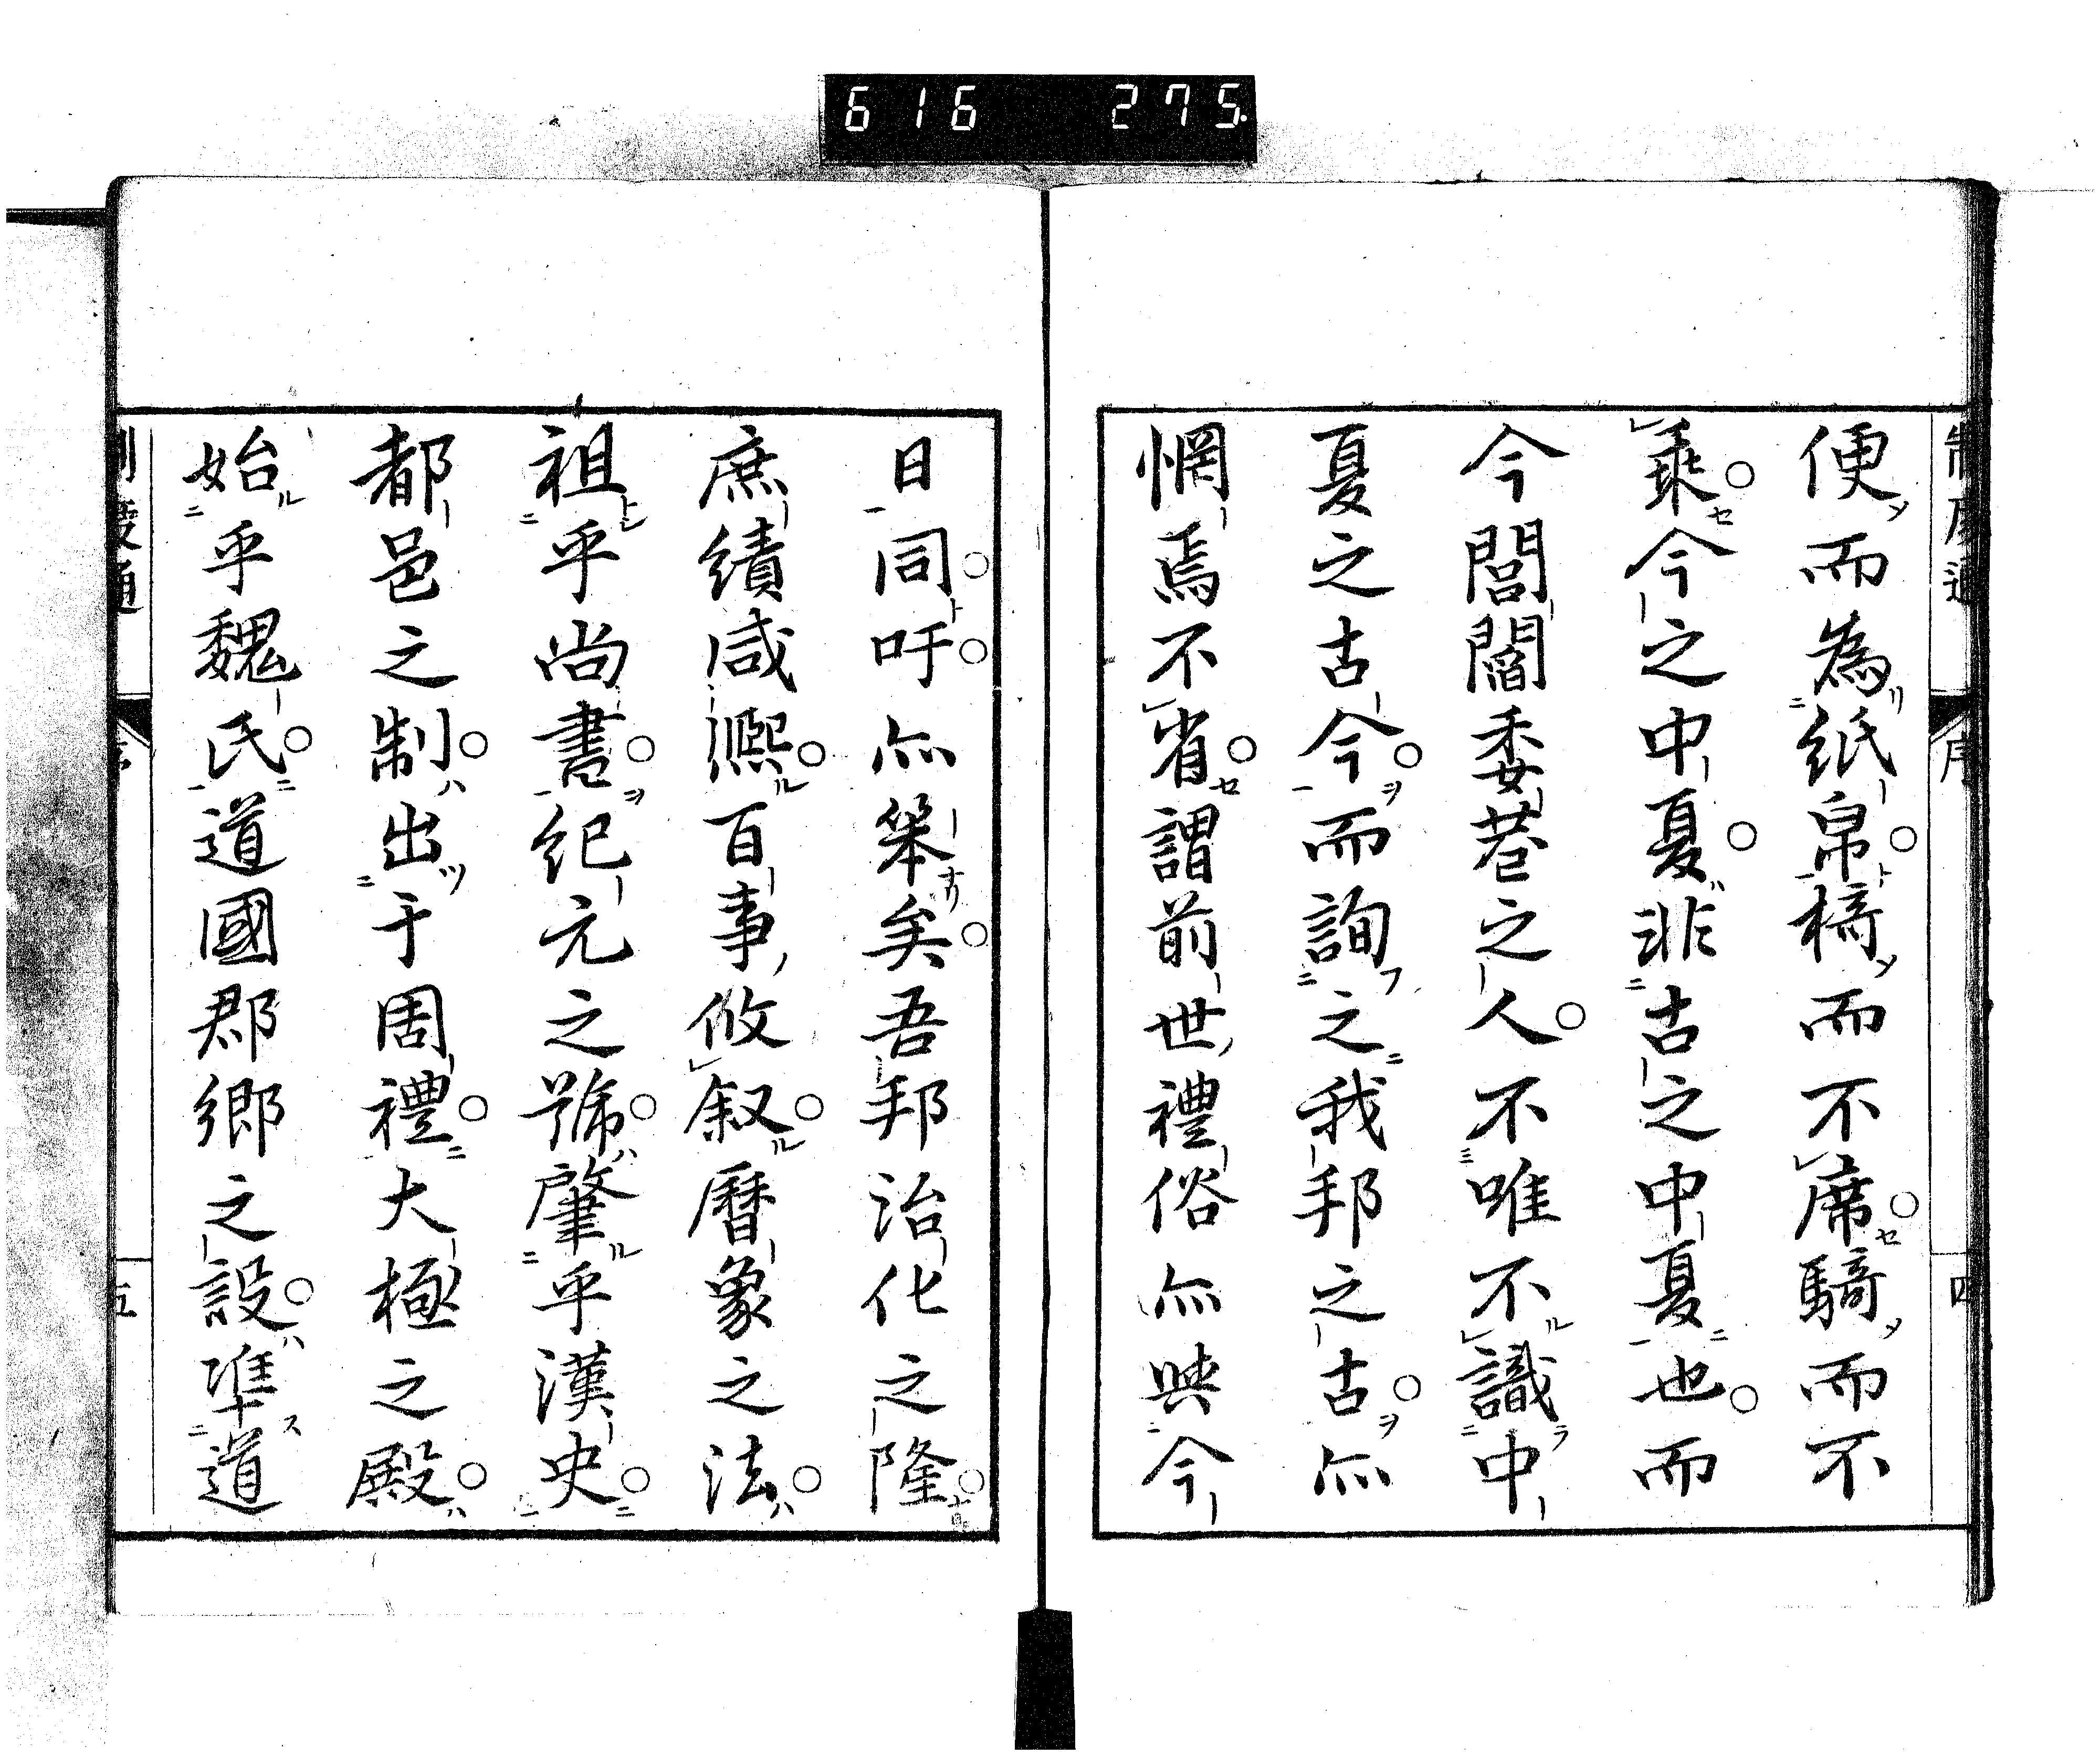 616 275
制度通 序 四
便而為紙帛椅而不席騎而不
乗今之中夏非古之中夏也而
今閭閻委巷之人不唯不識中
夏之古今而詢之我邦之古亦
惘焉不省謂前世禮俗亦與今
日同吁亦笨矣吾邦治化之隆
庶績咸熈百事攸叙曆象之法
祖乎尚書紀元之號肇乎漢史
都邑之制出于周禮大極之殿
始乎魏氏道國郡鄉之設準道
制度通 五